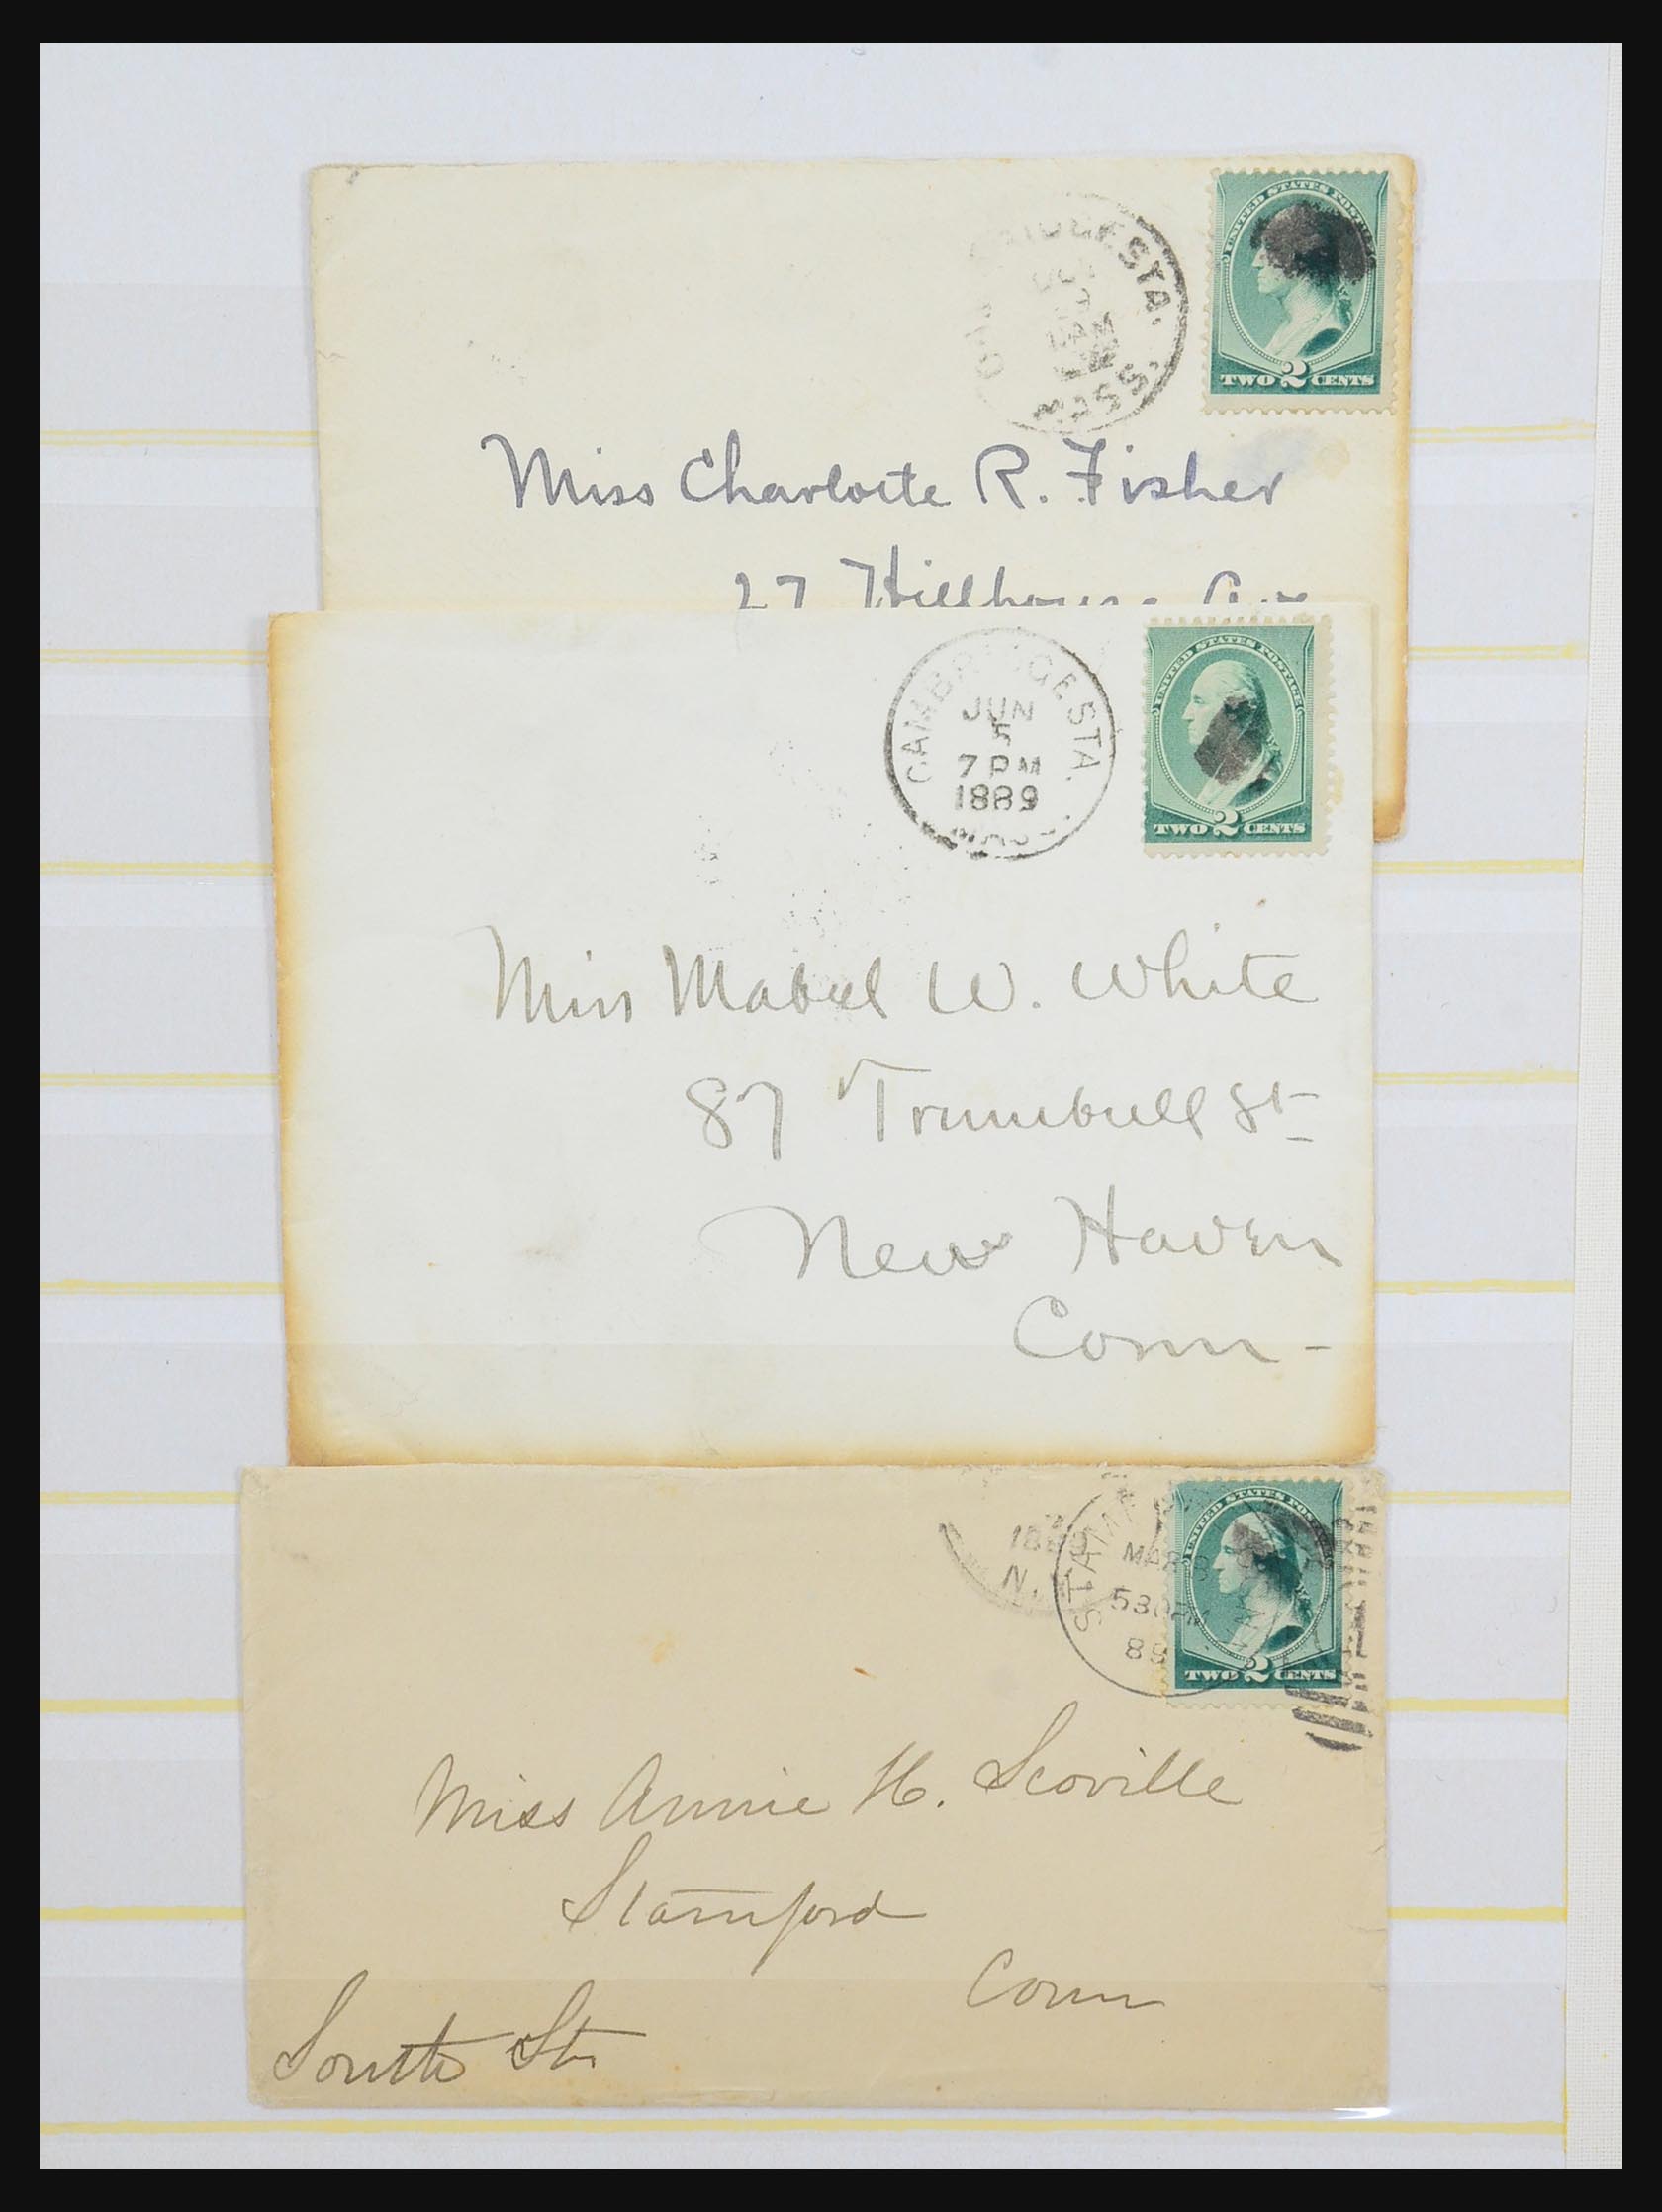 STA.
MASS.
UNITED STATES POST
TWO 2 CENTS
Miss Charlotte R. Fisher
27 Hillhouse Ave
CAMBRIDGE STA.
JUN
5
7 PM
1889
MASS.
UNITED STATES POSTAGE
TWO 2 CENTS
Miss Mabel W. White
87 Trumbull St
New Haven
Conn -
1889
N.
STAMFORD
MAR 8
530 PM
89
UNITED STATES POS
TWO 2 CENTS
Miss Annie H. Scoville
Stamford
Conn
South St.